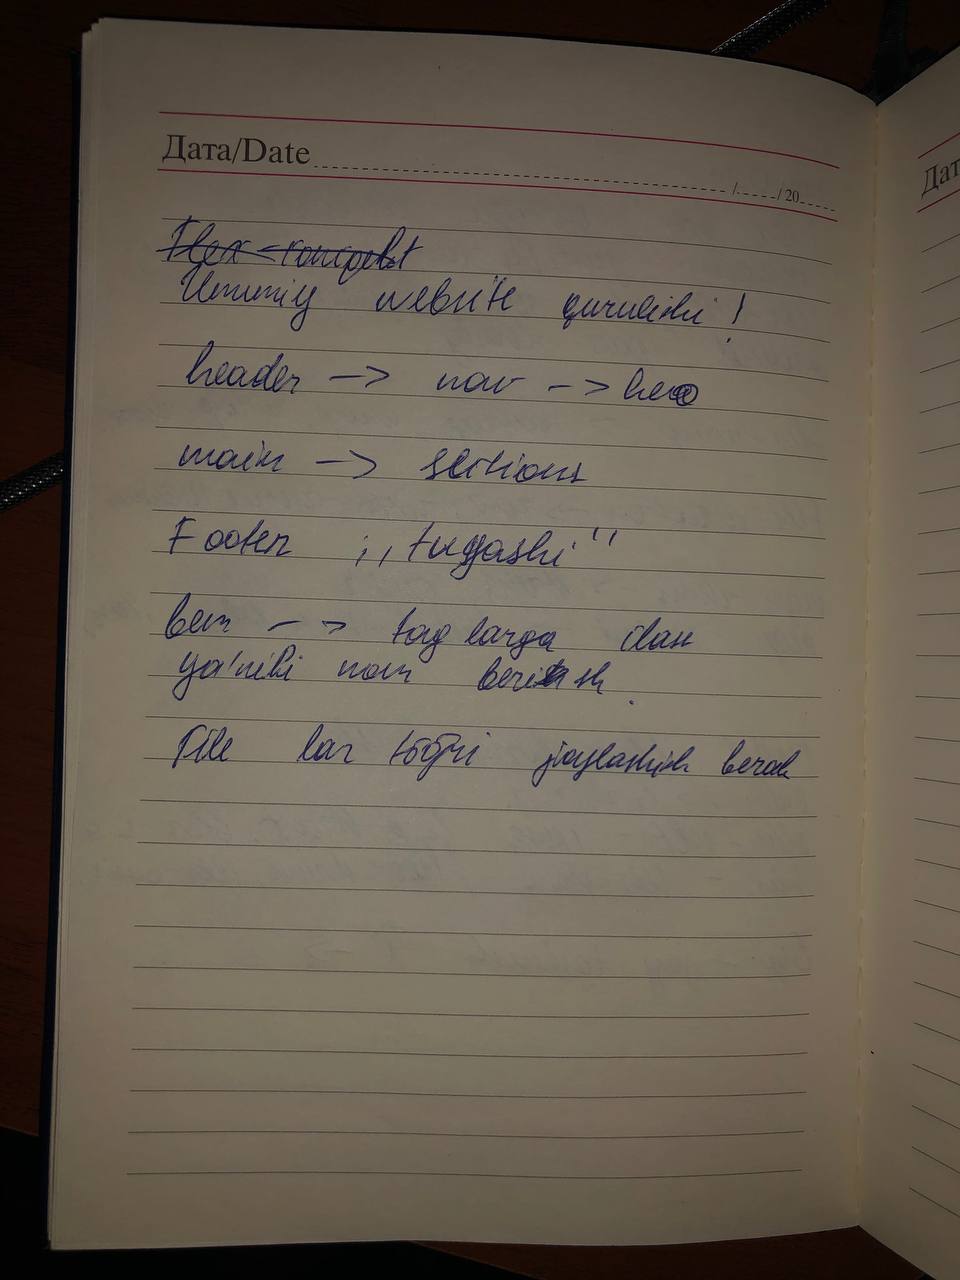 Дата/Date / / 20
Flex - koncpekt
Umumiy website qurulishi !
header -> nav -> hero
main -> sections
Footer ,, tugashi "
bem -> tag larga
ya'niki nom berish.
File lar to'g'ri joylashish kerak